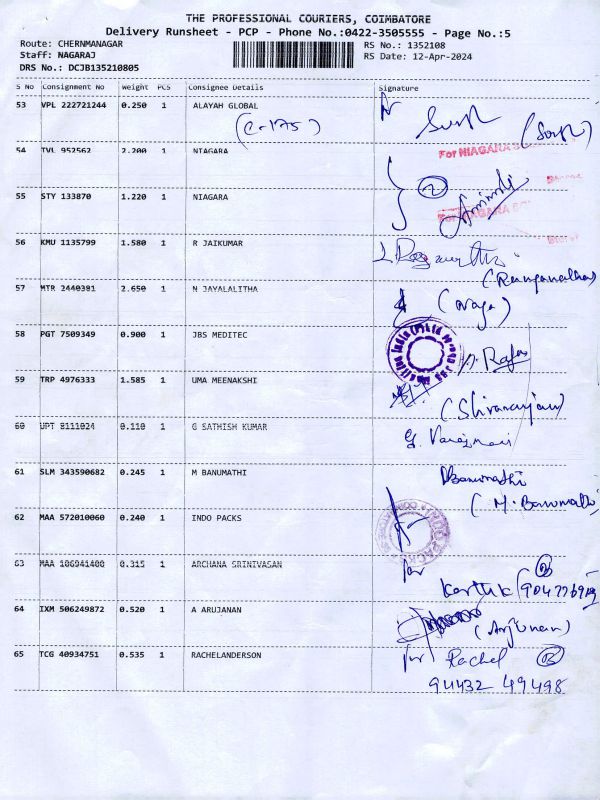 THE PROFESSIONAL COURIERS, COIMBATORE
Delivery Runsheet - PCP - Phone No.:0422-3505555 - Page No.:5
Route: CHERNMANAGAR RS No.: 1352108
Staff: NAGARAJ RS Date: 12-Apr-2024
DRS No.: DCJB135210805
S No Consignment No Weight PCS Consignee Details Signature
53 VPL 222721244 0.250 1 ALAYAH GLOBAL
(C-175)
54 TVL 952562 2.200 1 NIAGARA
For NIAGARA
55 STY 133870 1.220 1 NIAGARA
2
For NIAGARA
56 KMU 1135799 1.580 1 R JAIKUMAR
(Ranganathan)
57 MTR 2440381 2.650 1 N JAYALALITHA
(Naga)
58 PGT 7509349 0.900 1 JBS MEDITEC
59 TRP 4976333 1.585 1 UMA MEENAKSHI
(Shivaranjani)
60 UPT 8111024 0.110 1 G SATHISH KUMAR
61 SLM 343590682 0.245 1 M BANUMATHI
Banumathi
(M. Banumathi)
62 MAA 572010060 0.240 1 INDO PACKS
63 MAA 106941400 0.315 1 ARCHANA SRINIVASAN
Karthik
64 IXM 506249872 0.520 1 A ARUJANAN
(Arjunan)
65 TCG 40934751 0.535 1 RACHELANDERSON
Rachel
94432 49498